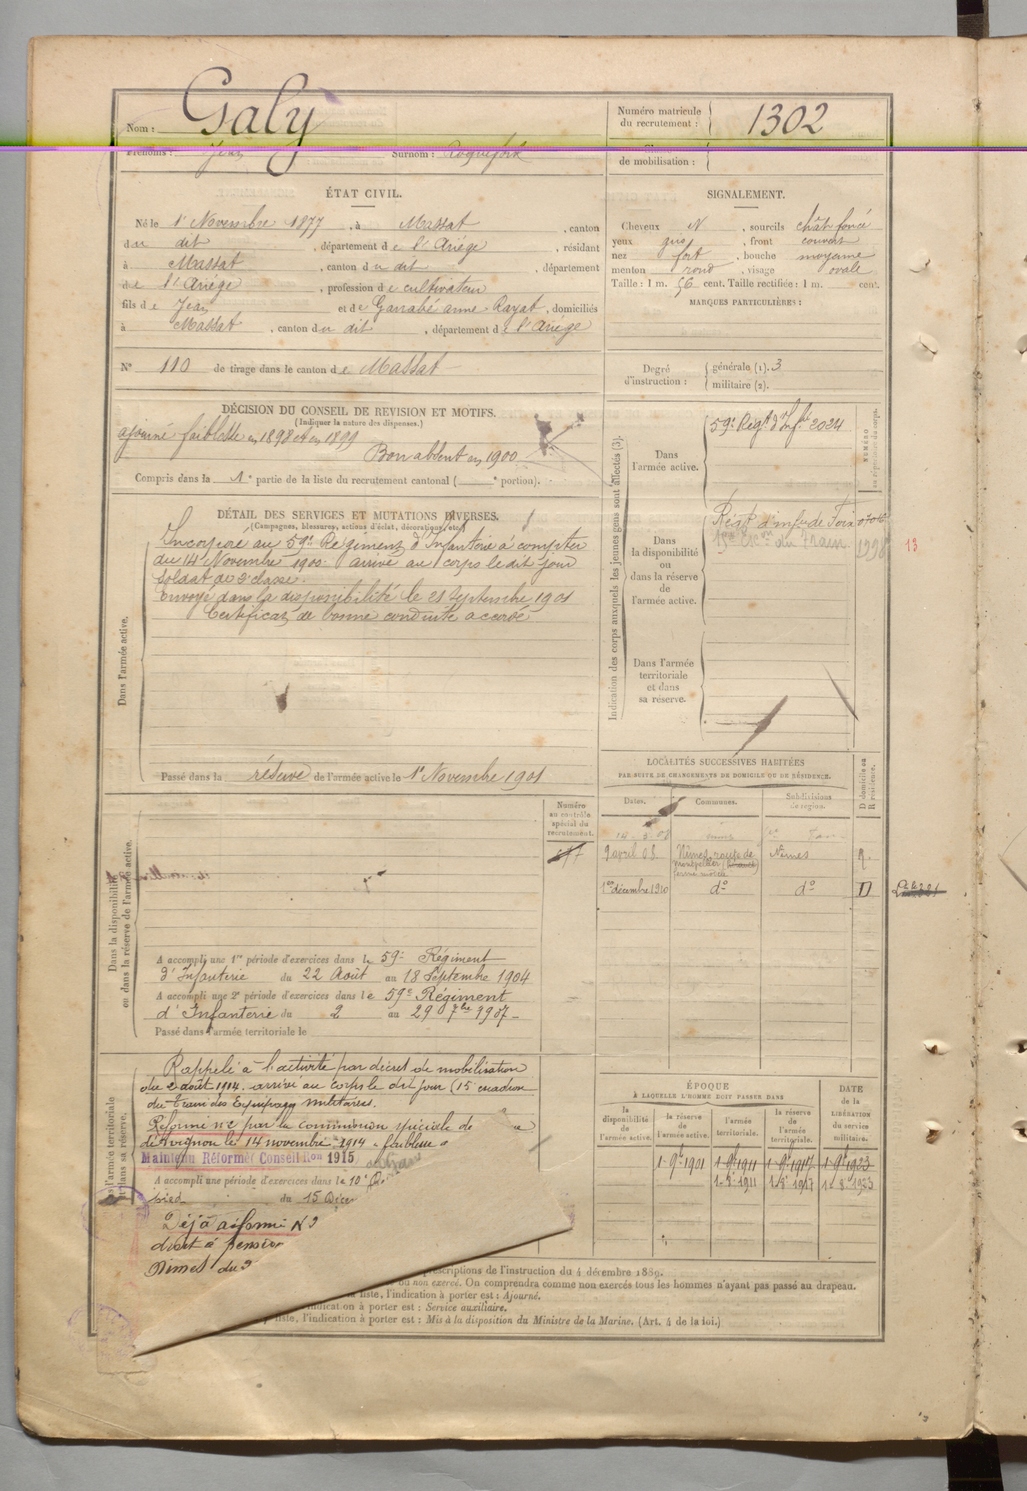 Nom : Galy
Numéro matricule du recrutement : 1302
Prénoms : Jean Surnom : Roquefort
de mobilisation :
ÉTAT CIVIL.
Né le 1r Novembre 1877, à Massat, canton
du dit, département de l'Ariège, résidant
à Massat, canton du dit, département
de l'Ariège, profession de cultivateur
fils de Jean et de Garrabé anne Rayat, domiciliés
à Massat, canton du dit, département de l'Ariège
SIGNALEMENT.
Cheveux N, sourcils chât foncé
yeux gris, front couvert
nez fort, bouche moyenne
menton rond, visage ovale
Taille : 1 m. 56 cent. Taille rectifiée : 1 m. cent.
MARQUES PARTICULIÈRES :
N° 110 de tirage dans le canton de Massat
Degré d'instruction : générale (1). 3
militaire (2).
DÉCISION DU CONSEIL DE REVISION ET MOTIFS.
(Indiquer la nature des dispenses.)
ajourné faiblesse en 1898 et en 1899
Bon absent en 1900
Compris dans la 1e partie de la liste du recrutement cantonal ( e portion).
DÉTAIL DES SERVICES ET MUTATIONS DIVERSES.
(Campagnes, blessures, actions d'éclat, décorations, etc.)
Dans l'armée active.
Incorporé au 59e Régiment d'Infanterie à compter
du 14 Novembre 1900. arrivé au corps le dit jour
soldat de 2e classe.
Envoyé dans la disponibilité le 21 Septembre 1901
Certificat de bonne conduite accordé
Passé dans la réserve de l'armée active le 1r Novembre 1901
Indication des corps auxquels les jeunes gens sont affectés (3).
NUMÉRO
au répertoire du corps.
Dans l'armée active.
59e Régt d'Infie 2024
Dans la disponibilité ou dans la réserve de l'armée active.
Régt d'infie de Foix
15e Eon du Train 1998
13
Dans l'armée territoriale et dans sa réserve.
LOCALITÉS SUCCESSIVES HABITÉES
PAR SUITE DE CHANGEMENTS DE DOMICILE OU DE RÉSIDENCE.
D domicile ou R résidence.
Dates. Communes. Subdivisions de région.
9 avril 08 Nîmes route de Montpellier Nîmes R.
1er décembre 1910 do do D
Dans la disponibilité ou dans la réserve de l'armée active.
Numéro au contrôle spécial du recrutement.
A accompli une 1re période d'exercices dans le 59e Régiment
d'Infanterie du 22 Août au 18 Septembre 1904
A accompli une 2e période d'exercices dans le 59e Régiment
d'Infanterie du 2 au 29 7bre 1907
Passé dans l'armée territoriale le
Rappelé à l'activité par décret de mobilisation
du 2 août 1914. arrivé au corps le dit jour (15e escadron
du Train des Equipages militaires.
Réformé n°2 par la commission spéciale de
d'Avignon le 14 novembre 1914 faiblesse
Maintenu Réformé Conseil Ron 1915
A accompli une période d'exercices dans le
pied du 15
Déjà réformé N° 2
droit à pension
Nîmes du
ÉPOQUE
À LAQUELLE L'HOMME DOIT PASSER DANS
la disponibilité de l'armée active.
la réserve de l'armée active.
l'armée territoriale.
la réserve de l'armée territoriale.
DATE de la LIBÉRATION du service militaire.
1-9e 1901 1-9e 1911 1-9e 1917 1-9e 1923
1-8e 1911 1-8e 1917 1-8e 1923
prescriptions de l'instruction du 4 décembre 1889.
ou non exercé. On comprendra comme non exercés tous les hommes n'ayant pas passé au drapeau.
liste, l'indication à porter est : Ajourné.
indication à porter est : Service auxiliaire.
liste, l'indication à porter est : Mis à la disposition du Ministre de la Marine. (Art. 4 de la loi.)